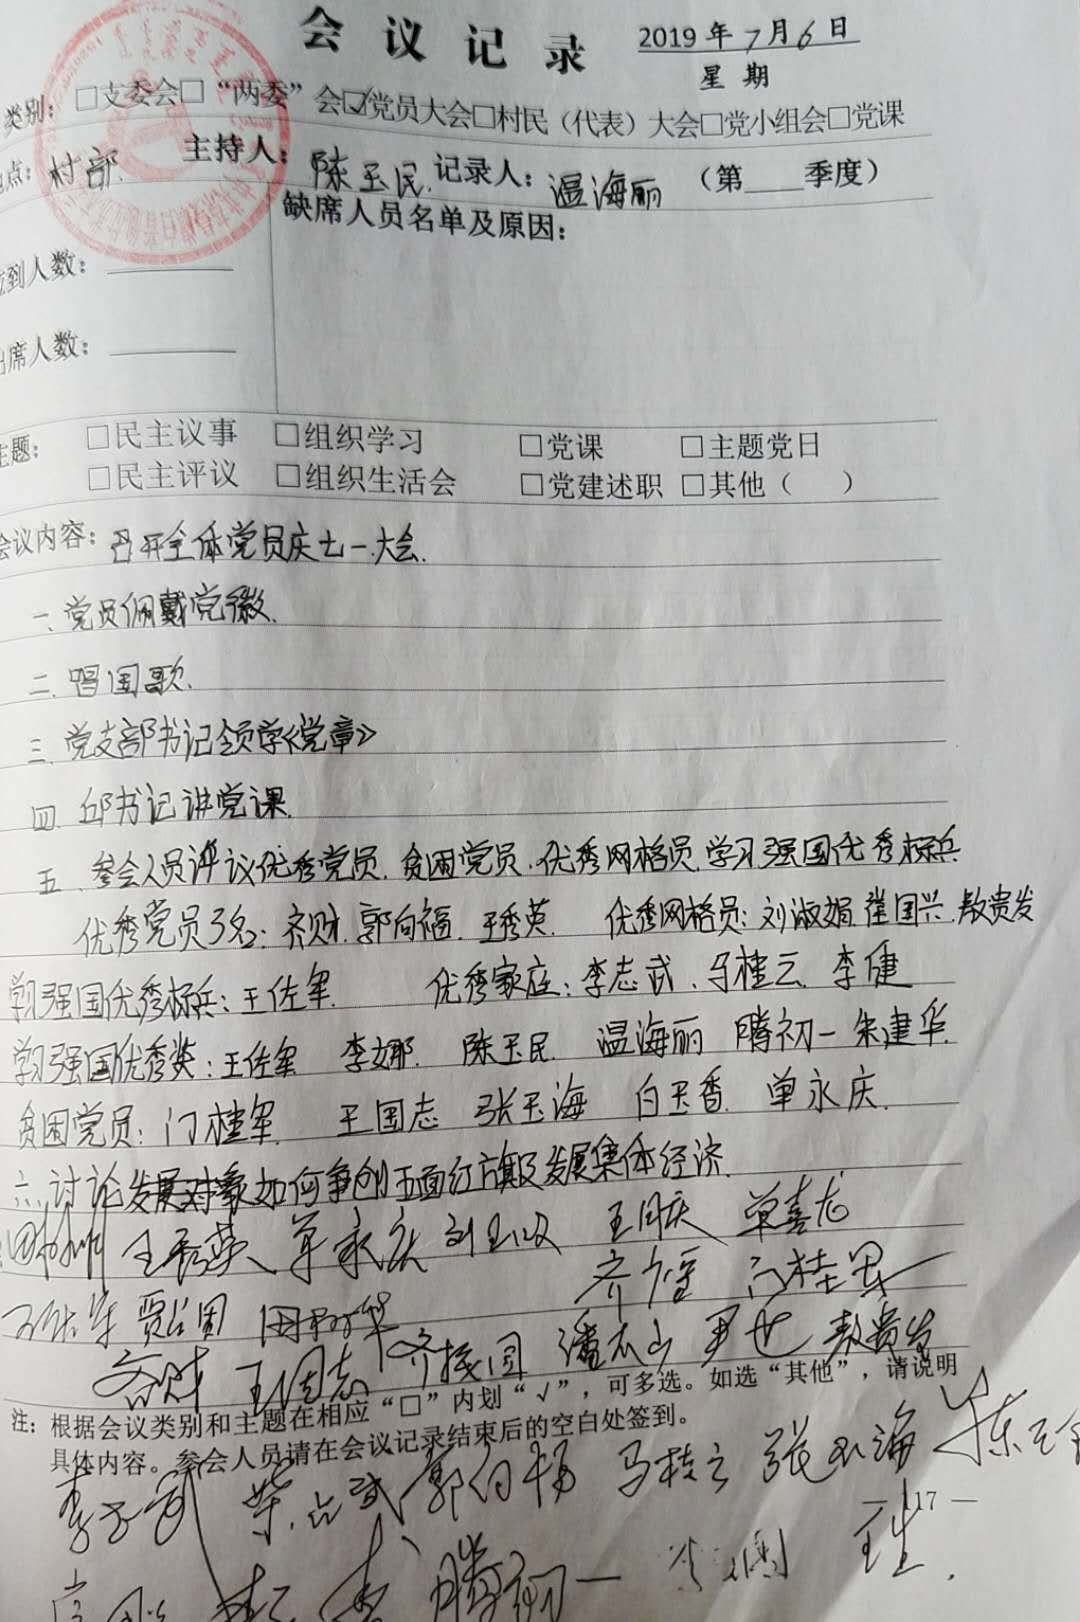 会议记录 2019年7月6日
星期
类别：□支委会□“两委”会☑党员大会□村民（代表）大会□党小组会□党课
点：村部 主持人：陈玉民 记录人：温海丽 （第____季度）
缺席人员名单及原因：
到人数：
席人数：
题： □民主议事 □组织学习 □党课 □主题党日
□民主评议 □组织生活会 □党建述职 □其他（ ）
会议内容：召开全体党员庆七一大会.
一、党员佩戴党徽.
二、唱国歌.
三、党支部书记领学《党章》
四、邱书记讲党课.
五、参会人员评议优秀党员、贫困党员、优秀网格员、学习强国优秀标兵
优秀党员3名：齐财、郭向福、王秀英. 优秀网格员：刘淑娟、崔国兴、敖贵发
学习强国优秀标兵：王佐军. 优秀家庭：李志武、马桂云、李健
学习强国优秀奖：王佐军 李娜. 陈玉民. 温海丽 腾初一 朱建华.
贫困党员：门桂军. 王国志 张玉海 白玉香. 单永庆.
六、讨论发展对象如何争创五面红旗及发展集体经济.
王秀英 单永庆 王国庆 单喜龙
门桂军
王佐军 贾公国
齐财 王国志 潘志山 敖贵发
注：根据会议类别和主题在相应“□”内划“√”，可多选。如选“其他”，请说明
具体内容。参会人员请在会议记录结束后的空白处签到。
李志武 郭向福 马桂云 张玉海
— 117 —
腾初一